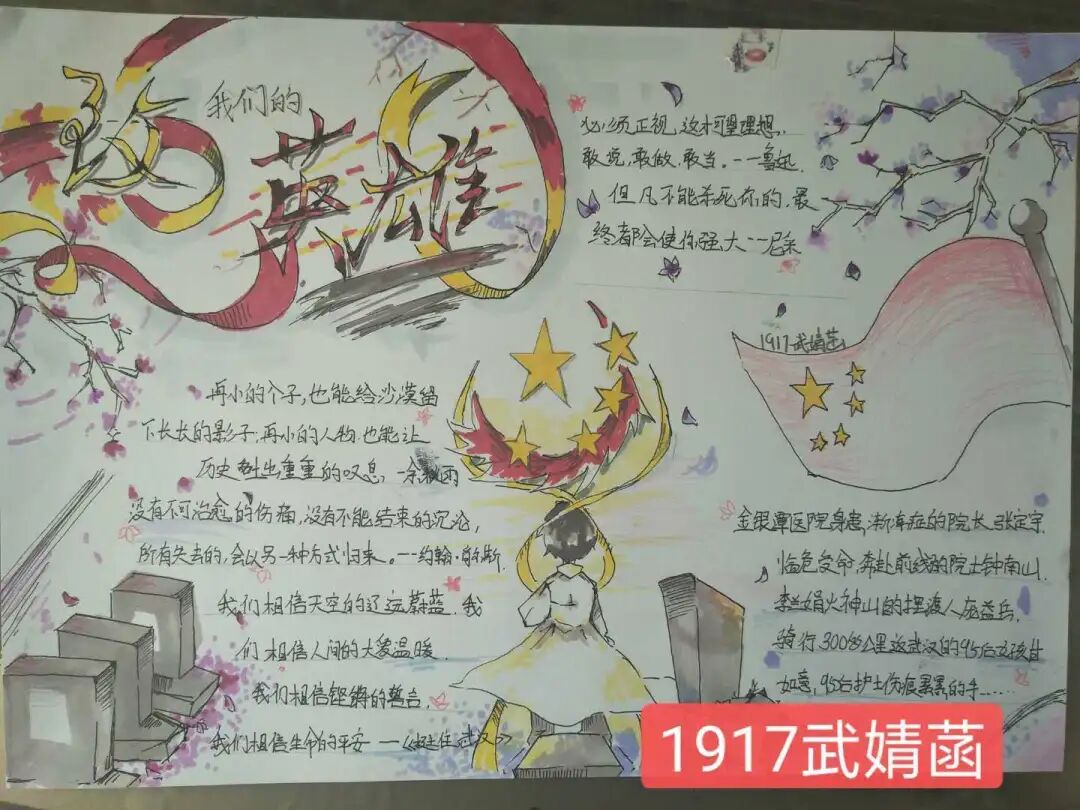 致
我们的
英雄
必须正视,这才可望理想,
敢说,敢做,敢当。--鲁迅
但凡不能杀死你的,最
终都会使你强大--尼采
1917武婧菡
再小的个子,也能给沙漠留
下长长的影子;再小的人物,也能让
历史吐出重重的叹息。-余秋雨
没有不可治愈的伤痛,没有不能结束的沉沦,
所有失去的,会以另一种方式归来。--约翰·
我们相信天空的辽远蔚蓝.我
们相信人间的大爱温暖.
我们相信铿锵的誓言,
我们相信生命的平安 —《武汉》
金银潭医院身患渐冻症的院长张定宇
临危受命,奔赴前线的院士钟南山.
李兰娟火神山的摆渡人庞益兵,
骑行300多公里返武汉的95后女孩甘
如意,95后护士伤痕累累的手……
1917武婧菡